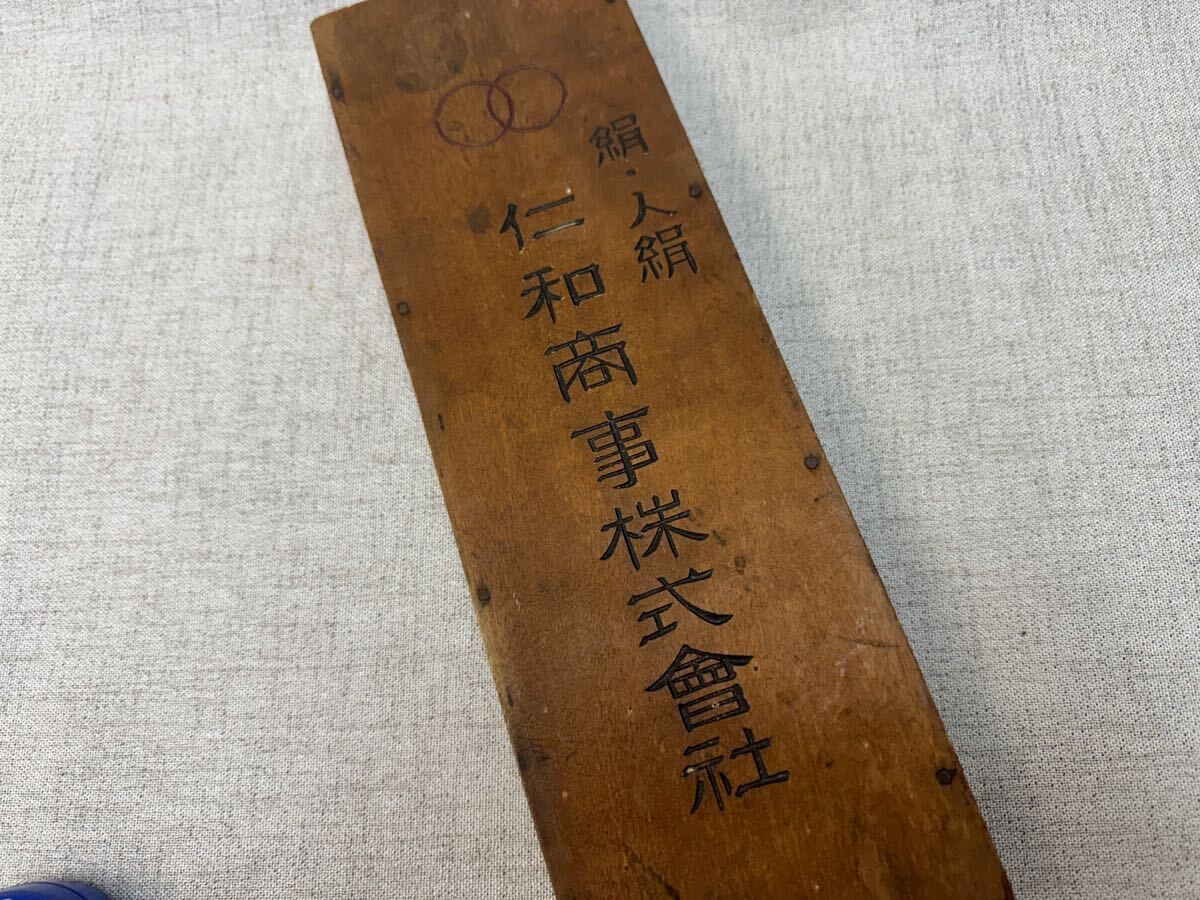 絹・人絹
仁和商事株式會社